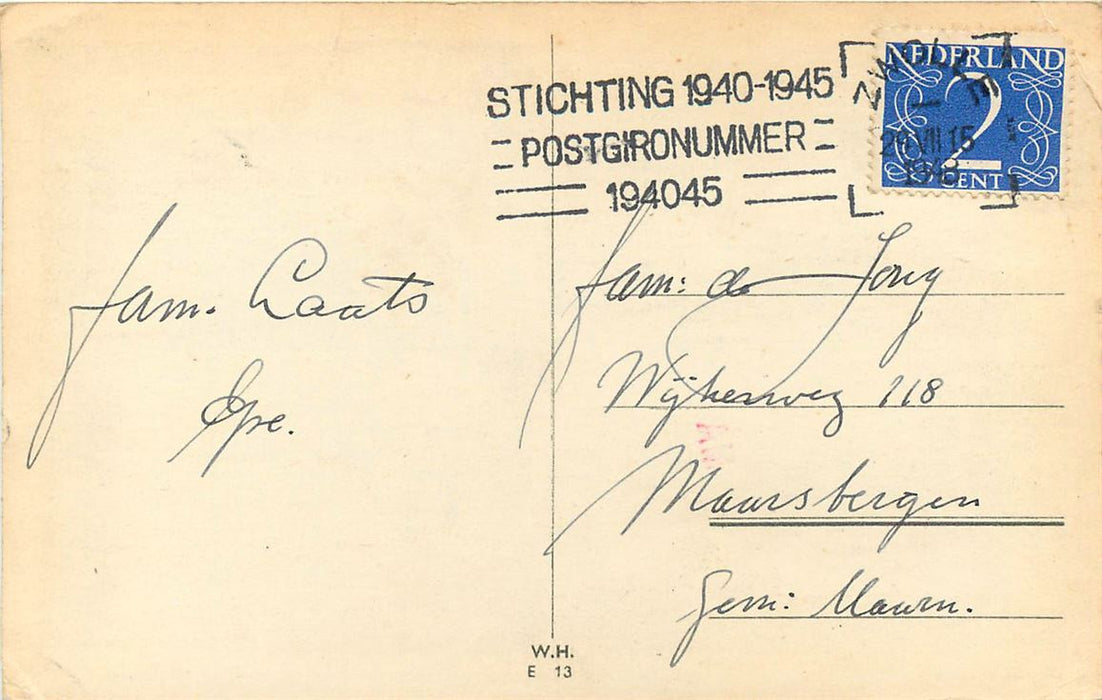 STICHTING 1940-1945
POSTGIRONUMMER
194045
ZWOLLE
29 VII 15
1948
NEDERLAND
2
CENT
fam. Laats
Epe.
fam: de Jong
Wijkerweg 118
Maarsbergen
Gem: Maarn.
W.H.
E 13